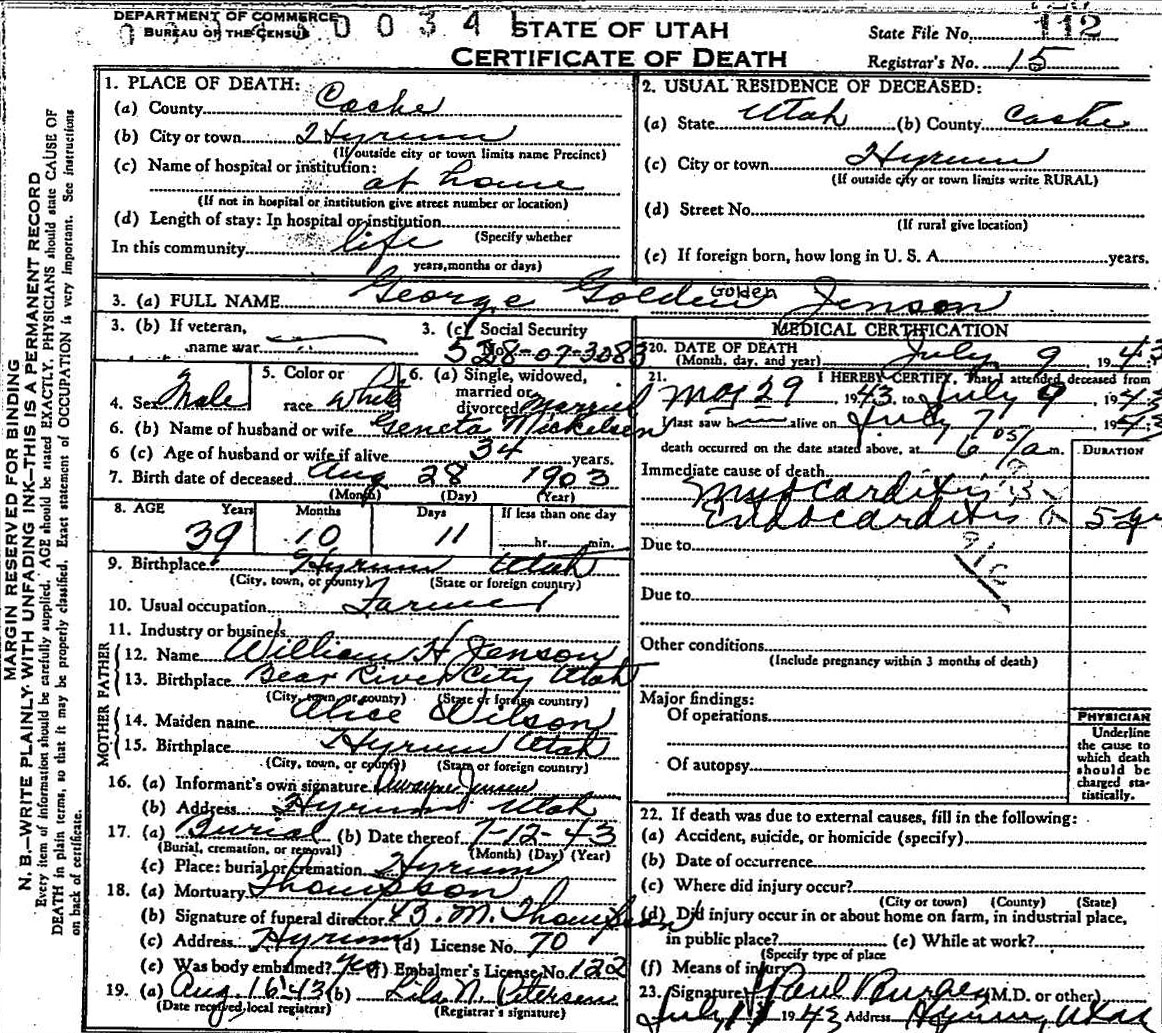 DEPARTMENT OF COMMERCE
BUREAU OF THE CENSUS
0034
STATE OF UTAH
CERTIFICATE OF DEATH
State File No. 112
Registrar's No. 15
MARGIN RESERVED FOR BINDING
N. B.—WRITE PLAINLY WITH UNFADING INK—THIS IS A PERMANENT RECORD
Every item of information should be carefully supplied. AGE should be stated EXACTLY. PHYSICIANS should state CAUSE OF
DEATH in plain terms, so that it may be properly classified. Exact statement of OCCUPATION is very important. See instructions
on back of certificate.
1. PLACE OF DEATH:
(a) County Cache
(b) City or town Hyrum
(If outside city or town limits name Precinct)
(c) Name of hospital or institution:
at home
(If not in hospital or institution give street number or location)
(d) Length of stay: In hospital or institution
(Specify whether
In this community life
years, months or days)
2. USUAL RESIDENCE OF DECEASED:
(a) State Utah (b) County Cache
(c) City or town Hyrum
(If outside city or town limits write RURAL)
(d) Street No.
(If rural give location)
(e) If foreign born, how long in U. S. A. years.
3. (a) FULL NAME George Golden Golden Jenson
3. (b) If veteran,
name war
3. (c) Social Security
No. 528-07-3083
4. Sex Male
5. Color or
race White
6. (a) Single, widowed,
married or
divorced Married
6. (b) Name of husband or wife Geneta Mickelsen
6 (c) Age of husband or wife if alive 34 years.
7. Birth date of deceased Aug 28 1903
(Month) (Day) (Year)
8. AGE Years Months Days If less than one day
39 10 11 hr. min.
9. Birthplace Hyrum Utah
(City, town, or county) (State or foreign country)
10. Usual occupation Farmer
11. Industry or business
FATHER
12. Name William H Jenson
13. Birthplace Bear River City Utah
(City, town or county) (State or foreign country)
MOTHER
14. Maiden name Alice Wilson
15. Birthplace Hyrum Utah
(City, town or county) (State or foreign country)
16. (a) Informant's own signature Dwayne Jensen
(b) Address Hyrum Utah
17. (a) Burial (b) Date thereof 7-12-43
(Burial, cremation, or removal) (Month) (Day) (Year)
(c) Place: burial or cremation Hyrum
18. (a) Mortuary Thompson
(b) Signature of funeral director M. Thompson
(c) Address Hyrum (d) License No. 70
(e) Was body embalmed? Yes (f) Embalmer's License No. 122
19. (a) Aug. 16 '43 (b) Lila N. Petersen
(Date received local registrar) (Registrar's signature)
MEDICAL CERTIFICATION
20. DATE OF DEATH
(Month, day, and year) July 9, 194
21. I HEREBY CERTIFY, That I attended deceased from
May 29, 1943, to July 9, 194
I last saw h alive on July 7, 194
death occurred on the date stated above, at 6 05/a m.
DURATION
Immediate cause of death
Myocarditis
Endocarditis 5 yr
Due to
Due to
Other conditions
(Include pregnancy within 3 months of death)
Major findings:
Of operations
Of autopsy
PHYSICIAN
Underline
the cause to
which death
should be
charged sta-
tistically.
22. If death was due to external causes, fill in the following:
(a) Accident, suicide, or homicide (specify)
(b) Date of occurrence
(c) Where did injury occur?
(City or town) (County) (State)
(d) Did injury occur in or about home on farm, in industrial place,
in public place? (e) While at work?
(Specify type of place
(f) Means of injury
23. Signature Paul Burgess (M.D. or other)
July 1943 Address Hyrum, Utah